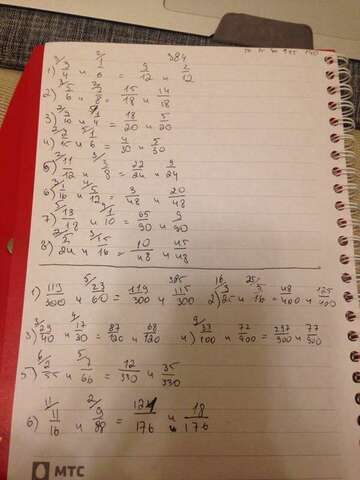 384
1) 3/4 и 1/6 = 9/12 и 2/12
2) 5/6 и 7/9 = 15/18 и 14/18
3) и 1/4 = 18/20 и 5/20
4) 2/15 и 1/6 = 4/30 и 5/30
5) 11/12 и 3/8 = 22/24 и 9/24
6) 1/16 и 5/12 = 3/48 и 20/48
7) 13/18 и 1/10 = 65/90 и 9/90
8) 5/24 и 15/16 = 10/48 и 45/48
385
1) 119/300 и 23/60 = 119/300 и 115/300 2) 3/25 и 5/16 = 48/400 и 125/400
3) 29/40 и 17/30 = 87/120 и 68/120 4) 33/100 и 77/900 = 297/900 и 77/900
5) 2/55 и 7/66 = 12/330 и 35/330
6) 11/16 и 9/88 = 121/176 и 18/176
МТС